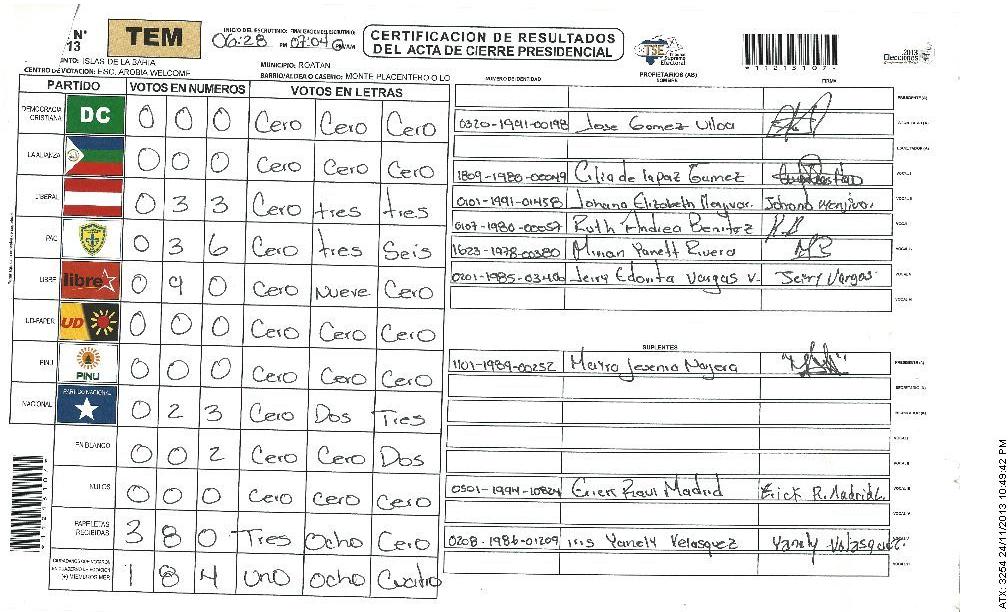 N° 13
TEM
INICIO DEL ESCRUTINIO: FINALIZACION DEL ESCRUTINIO:
06:28 PM 07:04 PM/AM
CERTIFICACION DE RESULTADOS
DEL ACTA DE CIERRE PRESIDENCIAL
TSE
Tribunal Supremo Electoral
2013
Elecciones
91121310 7
NTO: ISLAS DE LA BAHIA
MUNICIPIO: ROATAN
CENTRO DE VOTACION: ESC. AROBIA WELCOME
BARRIO/ALDEA O CASERIO: MONTE PLACENTERO O LO
NUMERO DE IDENTIDAD
PROPIETARIOS (AS)
NOMBRE
FIRMA
PARTIDO VOTOS EN NUMEROS VOTOS EN LETRAS
DEMOCRACIA CRISTIANA DC 0 0 0 Cero Cero Cero
LA ALIANZA 0 0 0 Cero Cero Cero
LIBERAL 0 3 3 Cero tres tres
PAC 0 3 6 Cero tres Seis
LIBRE libre 0 9 0 Cero Nueve Cero
UD-FAPER UD 0 0 0 Cero Cero Cero
PINU PINU 0 0 0 Cero Cero Cero
NACIONAL PARTIDO NACIONAL 0 2 3 Cero Dos Tres
EN BLANCO 0 0 2 Cero Cero Dos
NULOS 0 0 0 Cero cero Cero
PAPELETAS RECIBIDAS 3 8 0 Tres Ocho Cero
CIUDADANOS QUE VOTARON EN CUADERNO DE VOTACION (+) MIEMBROS MER 1 8 4 uno ocho Cuatro
PRESIDENTE (A)
0320-1991-00198 Jose Gomez Ulloa
SECRETARIO (A)
ESCRUTADOR (A)
1809-1980-00049 Cilia de la paz Gamez
VOCAL I
0101-1991-01458 Johana Elizabeth Menjivar. Johana Menjivar.
VOCAL II
0107-1980-00057 Ruth Andrea Benitez
1623-1978-00380 Mirian Yanett Rivera
0201-1985-03406 Jerry Edonta Vargas V. Jerry Vargas
SUPLENTES
1101-1989-00252 Mayra Jesenia Najera
PRESIDENTE (A)
SECRETARIO (A)
ESCRUTADOR (A)
VOCAL I
VOCAL II
0501-1994-10824 Erick Raul Madrid Erick R. Madrid L.
VOCAL III
0208-1986-01209 Iris Yanely Velasquez Yanely Velasquez.
ATX: 3254 24/11/2013 10:49:42 PM